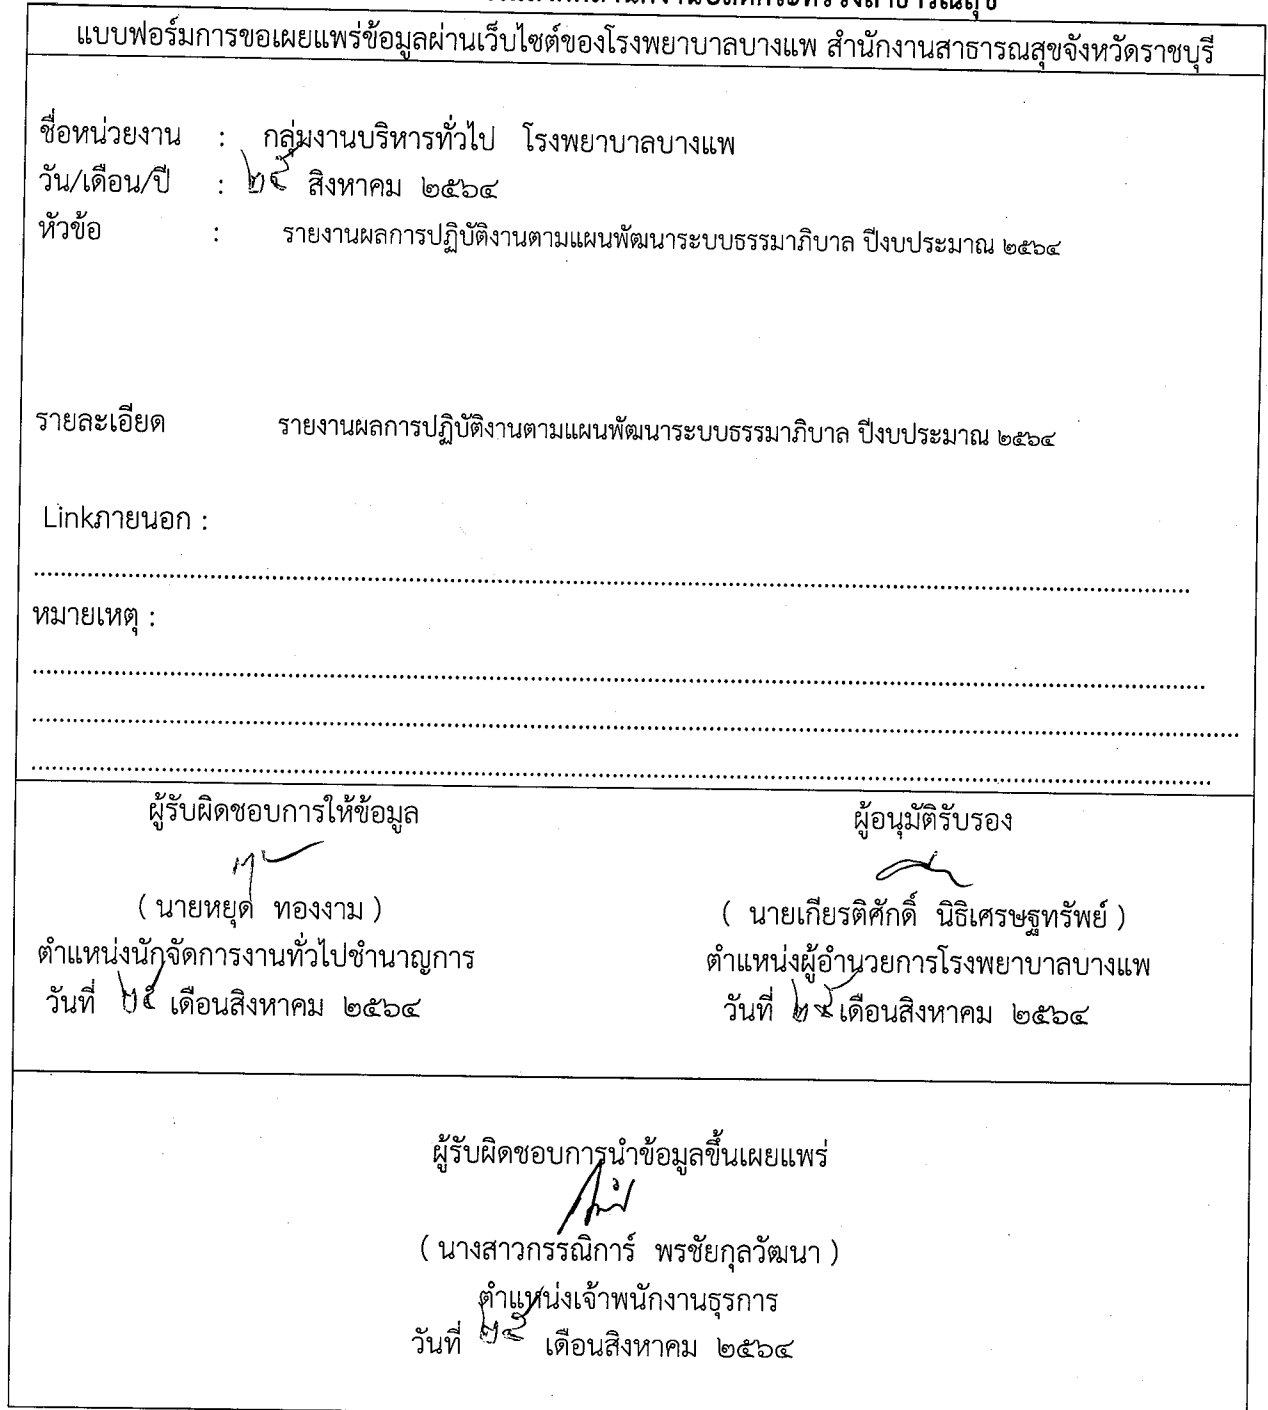 แบบฟอร์มการขอเผยแพร่ข้อมูลผ่านเว็บไซต์ของโรงพยาบาลบางแพ สำนักงานสาธารณสุขจังหวัดราชบุรี
ชื่อหน่วยงาน : กลุ่มงานบริหารทั่วไป โรงพยาบาลบางแพ
วัน/เดือน/ปี : ๒๕ สิงหาคม ๒๕๖๔
หัวข้อ : รายงานผลการปฏิบัติงานตามแผนพัฒนาระบบธรรมาภิบาล ปีงบประมาณ ๒๕๖๔
รายละเอียด รายงานผลการปฏิบัติงานตามแผนพัฒนาระบบธรรมาภิบาล ปีงบประมาณ ๒๕๖๔
Linkภายนอก :
หมายเหตุ :
ผู้รับผิดชอบการให้ข้อมูล
( นายหยุด ทองงาม )
ตำแหน่งนักจัดการงานทั่วไปชำนาญการ
วันที่ ๒๕ เดือนสิงหาคม ๒๕๖๔
ผู้อนุมัติรับรอง
( นายเกียรติศักดิ์ นิธิเศรษฐทรัพย์ )
ตำแหน่งผู้อำนวยการโรงพยาบาลบางแพ
วันที่ ๒๕ เดือนสิงหาคม ๒๕๖๔
ผู้รับผิดชอบการนำข้อมูลขึ้นเผยแพร่
( นางสาวกรรณิการ์ พรชัยกุลวัฒนา )
ตำแหน่งเจ้าพนักงานธุรการ
วันที่ ๒๕ เดือนสิงหาคม ๒๕๖๔